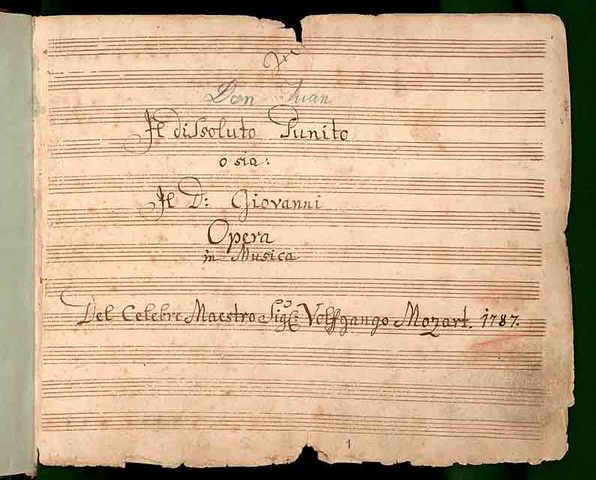 Don Juan
Il dissoluto Punito
o sia:
Il D: Giovanni
Opera
in Musica
Del Celebre Maestro Sigre: Volfgango Mozart. 1787.
1